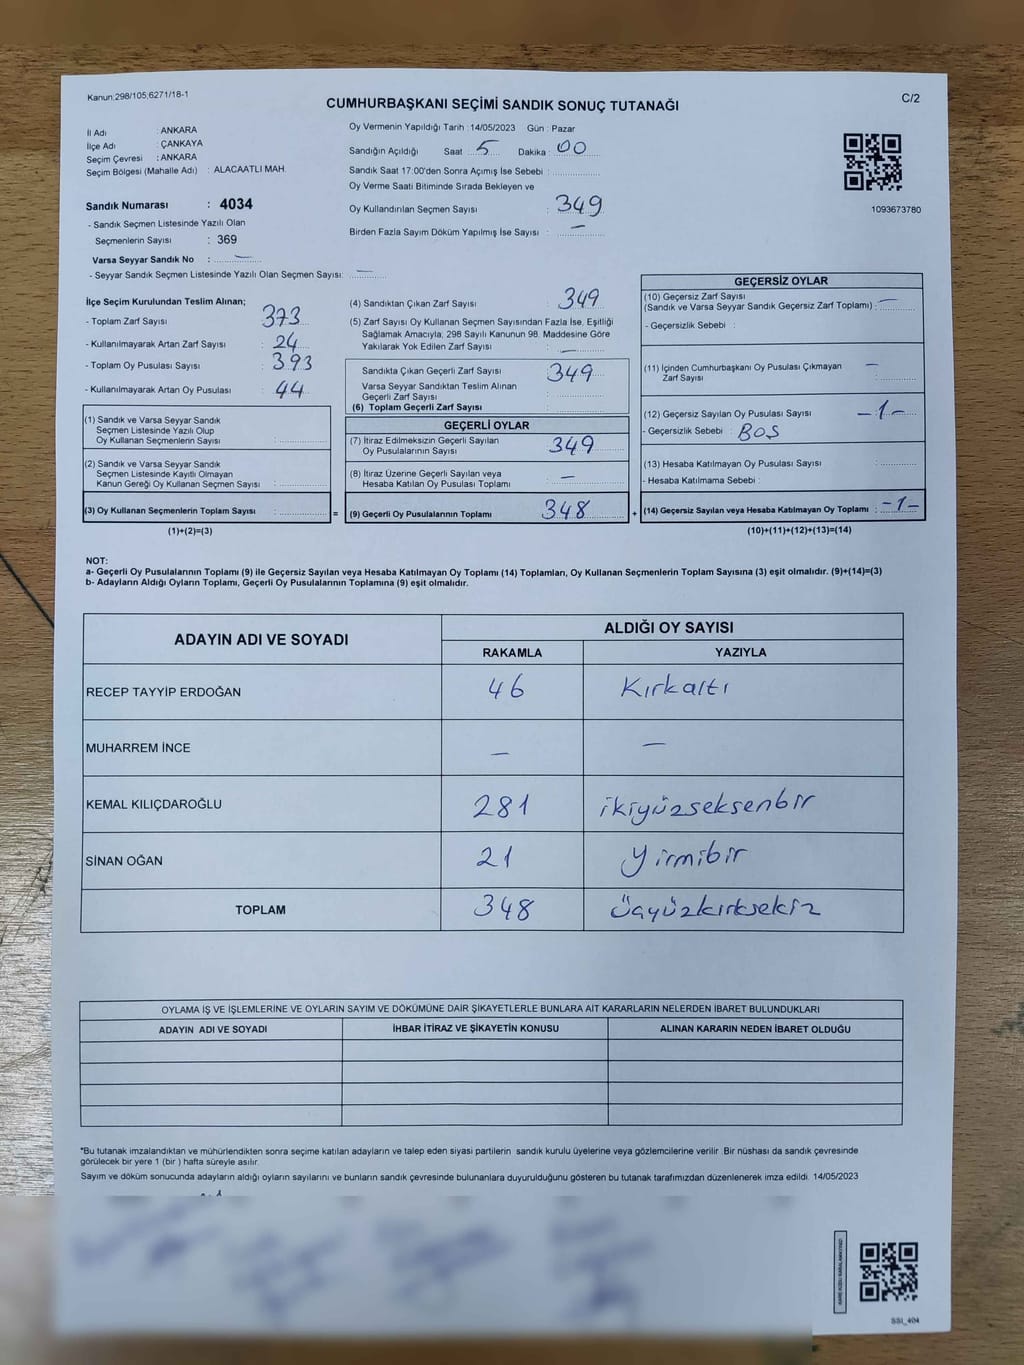 Kanun:298/105;6271/18-1
CUMHURBAŞKANI SEÇİMİ SANDIK SONUÇ TUTANAĞI
C/2
İl Adı : ANKARA
İlçe Adı : ÇANKAYA
Seçim Çevresi : ANKARA
Seçim Bölgesi (Mahalle Adı) : ALACAATLI MAH
Sandık Numarası : 4034
- Sandık Seçmen Listesinde Yazılı Olan
Seçmenlerin Sayısı : 369
Varsa Seyyar Sandık No : —
- Seyyar Sandık Seçmen Listesinde Yazılı Olan Seçmen Sayısı: —
Oy Vermenin Yapıldığı Tarih : 14/05/2023 Gün : Pazar
Sandığın Açıldığı Saat : 5 Dakika : 00
Sandık Saat 17:00'den Sonra Açımış İse Sebebi :
Oy Verme Saati Bitiminde Sırada Bekleyen ve
Oy Kullandırılan Seçmen Sayısı : 349
Birden Fazla Sayım Döküm Yapılmış İse Sayısı : —
1093673780
İlçe Seçim Kurulundan Teslim Alınan;
- Toplam Zarf Sayısı : 373
- Kullanılmayarak Artan Zarf Sayısı : 24
- Toplam Oy Pusulası Sayısı : 393
- Kullanılmayarak Artan Oy Pusulası : 44
(1) Sandık ve Varsa Seyyar Sandık
Seçmen Listesinde Yazılı Olup
Oy Kullanan Seçmenlerin Sayısı :
(2) Sandık ve Varsa Seyyar Sandık
Seçmen Listesinde Kayıtlı Olmayan
Kanun Gereği Oy Kullanan Seçmen Sayısı :
(3) Oy Kullanan Seçmenlerin Toplam Sayısı : =
(1)+(2)=(3)
(4) Sandıktan Çıkan Zarf Sayısı : 349
(5) Zarf Sayısı Oy Kullanan Seçmen Sayısından Fazla İse, Eşitliği
Sağlamak Amacıyla; 298 Sayılı Kanunun 98. Maddesine Göre
Yakılarak Yok Edilen Zarf Sayısı : —
Sandıkta Çıkan Geçerli Zarf Sayısı : 349
Varsa Seyyar Sandıktan Teslim Alınan
Geçerli Zarf Sayısı :
(6) Toplam Geçerli Zarf Sayısı :
GEÇERLİ OYLAR
(7) İtiraz Edilmeksizin Geçerli Sayılan
Oy Pusulalarının Sayısı : 349
(8) İtiraz Üzerine Geçerli Sayılan veya
Hesaba Katılan Oy Pusulası Toplamı : —
(9) Geçerli Oy Pusulalarının Toplamı : 348 +
GEÇERSİZ OYLAR
(10) Geçersiz Zarf Sayısı
(Sandık ve Varsa Seyyar Sandık Geçersiz Zarf Toplamı) : —
- Geçersizlik Sebebi :
(11) İçinden Cumhurbaşkanı Oy Pusulası Çıkmayan
Zarf Sayısı : —
(12) Geçersiz Sayılan Oy Pusulası Sayısı : -1-
- Geçersizlik Sebebi : BOŞ
(13) Hesaba Katılmayan Oy Pusulası Sayısı :
- Hesaba Katılmama Sebebi :
(14) Geçersiz Sayılan veya Hesaba Katılmayan Oy Toplamı : -1-
(10)+(11)+(12)+(13)=(14)
NOT:
a- Geçerli Oy Pusulalarının Toplamı (9) ile Geçersiz Sayılan veya Hesaba Katılmayan Oy Toplamı (14) Toplamları, Oy Kullanan Seçmenlerin Toplam Sayısına (3) eşit olmalıdır. (9)+(14)=(3)
b- Adayların Aldığı Oyların Toplamı, Geçerli Oy Pusulalarının Toplamına (9) eşit olmalıdır.
ADAYIN ADI VE SOYADI ALDIĞI OY SAYISI
RAKAMLA YAZIYLA
RECEP TAYYİP ERDOĞAN 46 Kırkaltı
MUHARREM İNCE — —
KEMAL KILIÇDAROĞLU 281 ikiyüzseksenbir
SİNAN OĞAN 21 Yirmibir
TOPLAM 348 üçyüzkırksekiz
OYLAMA İŞ VE İŞLEMLERİNE VE OYLARIN SAYIM VE DÖKÜMÜNE DAİR ŞİKAYETLERLE BUNLARA AİT KARARLARIN NELERDEN İBARET BULUNDUKLARI
ADAYIN ADI VE SOYADI İHBAR İTİRAZ VE ŞİKAYETİN KONUSU ALINAN KARARIN NEDEN İBARET OLDUĞU
*Bu tutanak imzalandıktan ve mühürlendikten sonra seçime katılan adayların ve talep eden siyasi partilerin sandık kurulu üyelerine veya gözlemcilerine verilir .Bir nüshası da sandık çevresinde
görülecek bir yere 1 (bir ) hafta süreyle asılır.
Sayım ve döküm sonucunda adayların aldığı oyların sayılarını ve bunların sandık çevresinde bulunanlara duyurulduğunu gösteren bu tutanak tarafımızdan düzenlenerek imza edildi. 14/05/2023
SSI_404